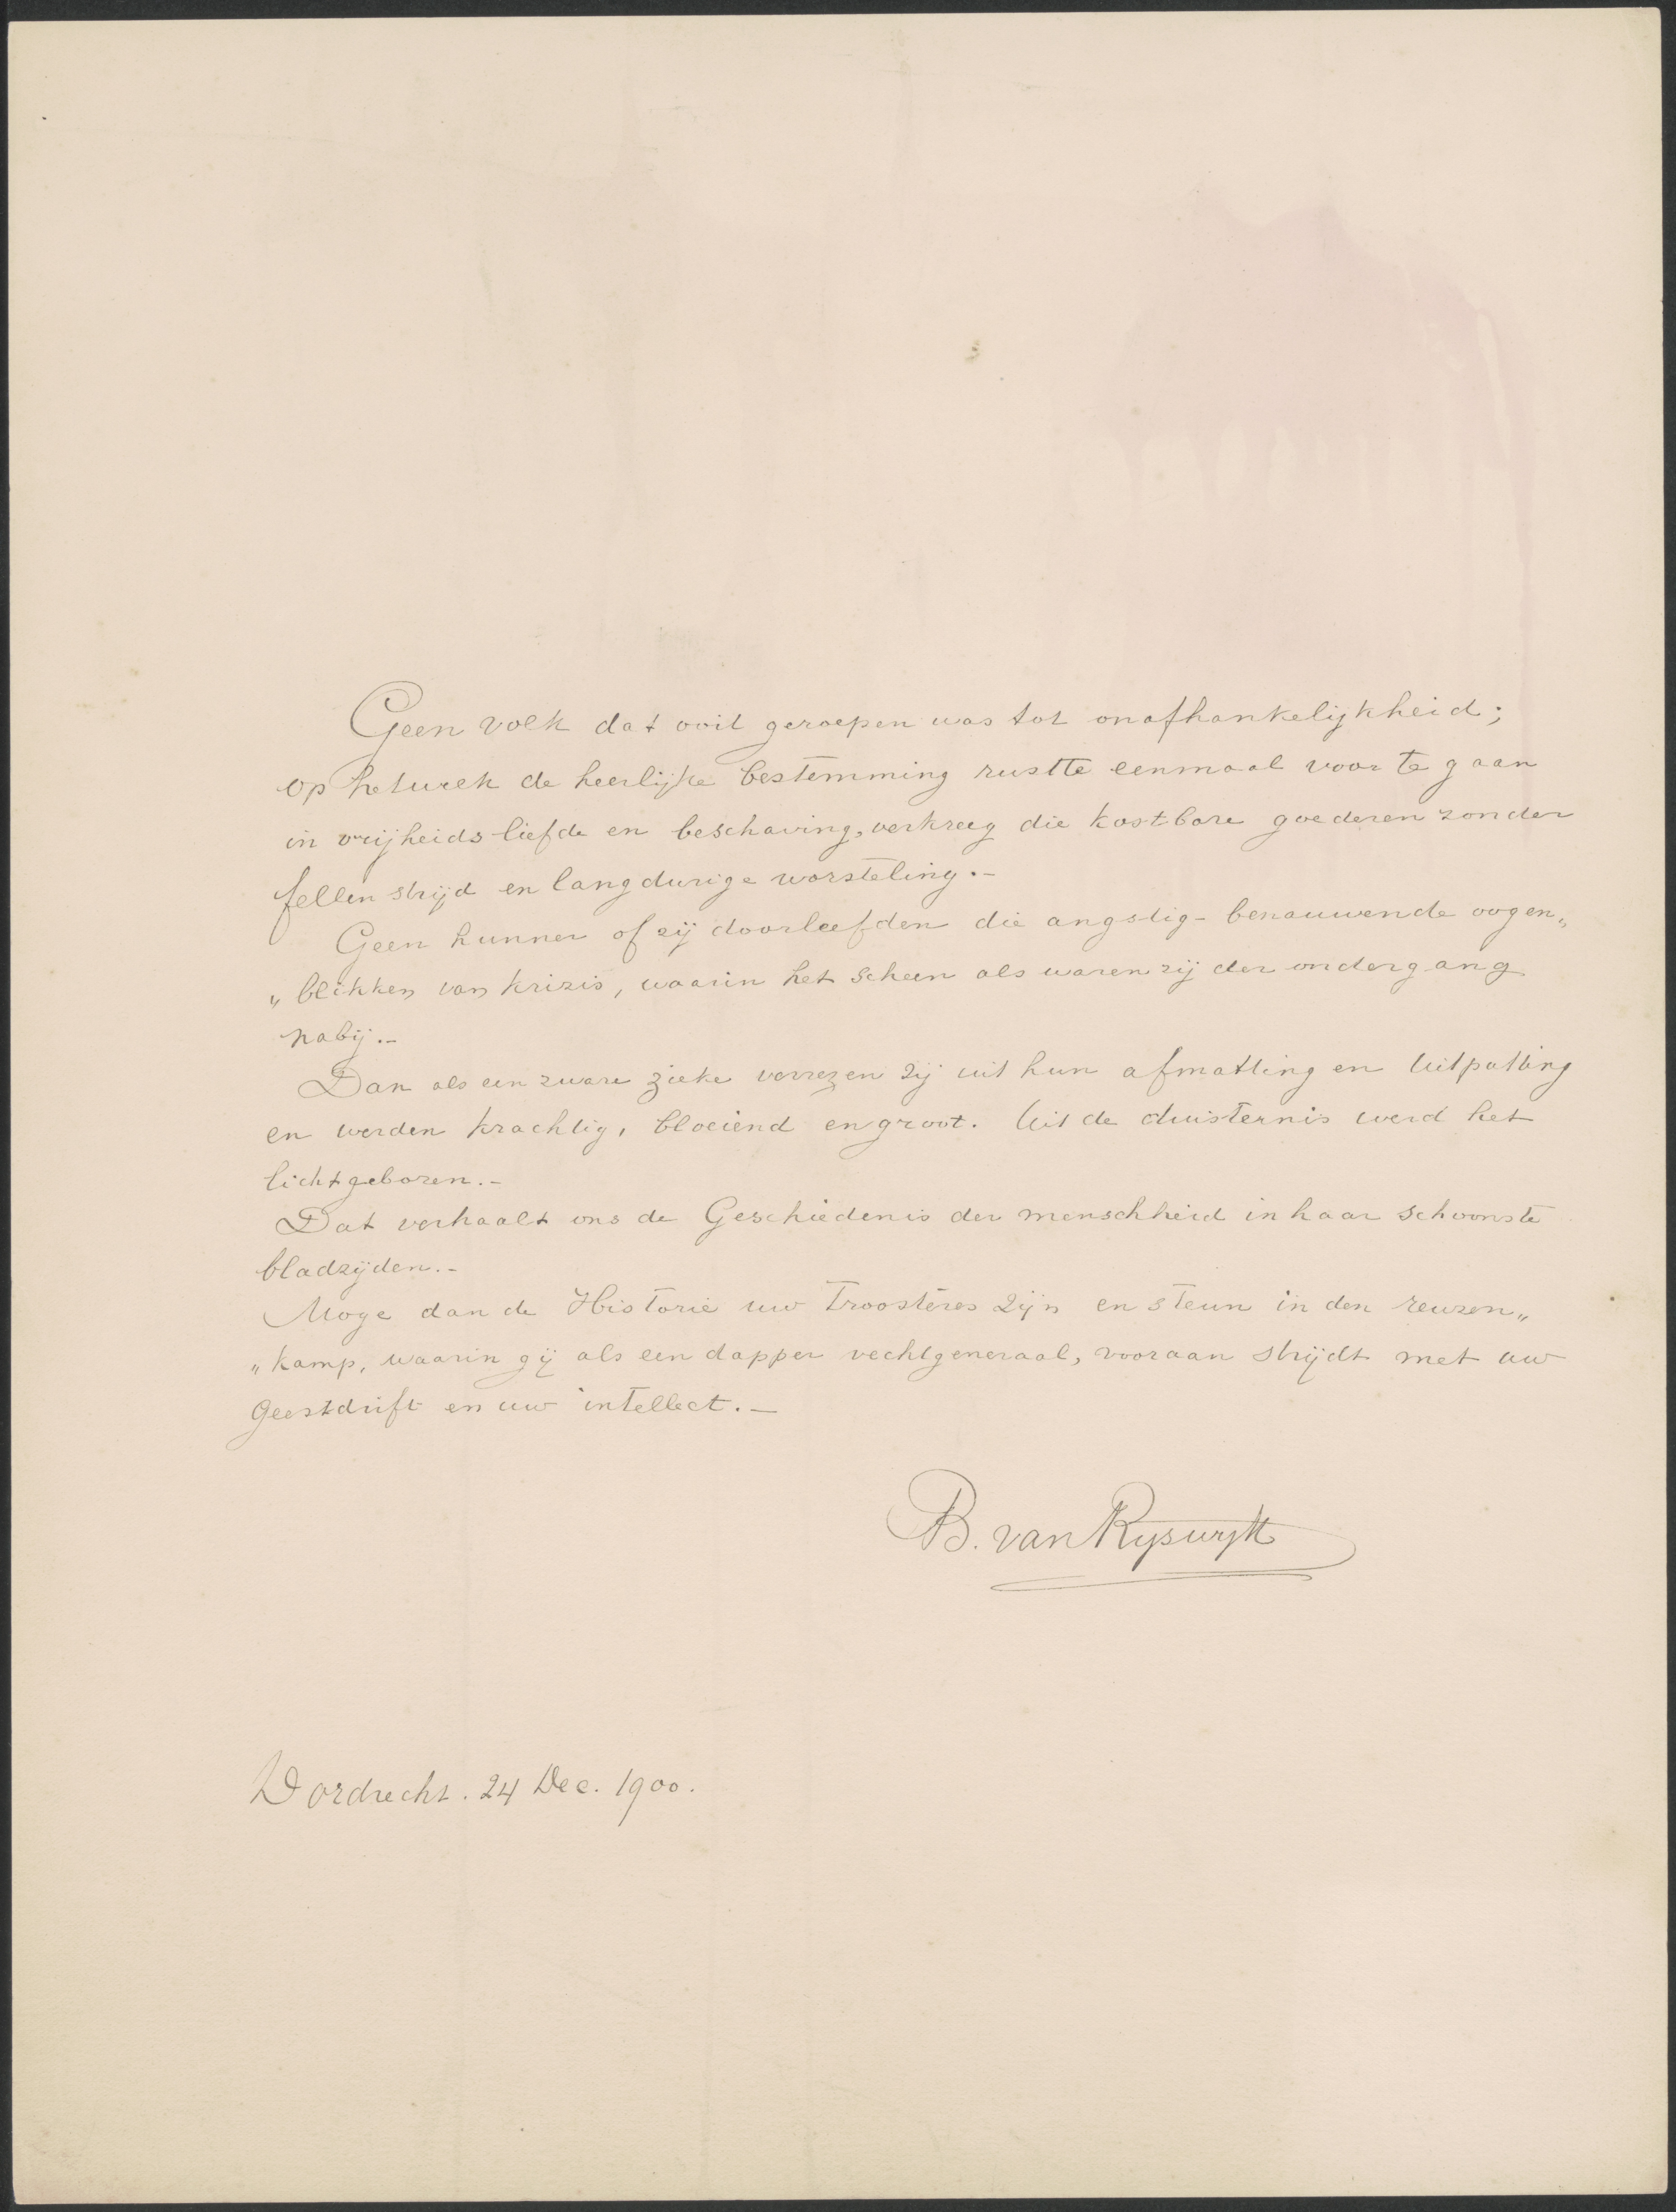 Geen volk dat ooit geroepen was tot onafhankelijkheid;
op hetwelk de heerlijke bestemming rustte eenmaal voor te gaan
in vrijheidsliefde en beschaving, verkreeg die kostbare goederen zonder
fellen strijd en langdurige worsteling.-
Geen hunner of zij doorleefden die angstig-benauwende oogen„
„blikken van krizis, waarin het scheen als waren zij der ondergang
nabij.-
Dan als een zware zieke verrezen zij uit hun afmatting en uitputting
en werden krachtig, bloeiend en groot. Uit de duisternis werd het
licht geboren.-
Dat verhaalt ons de Geschiedenis der menschheid in haar schoonste
bladzijden.-
Moge dan de Historie uw Troosteres zijn en steun in den reuzen„
„kamp, waarin gij als een dapper vechtgeneraal, vooraan strijdt met uw
geestdrift en uw intellect.-
B. van Rijswijk
Dordrecht. 24 Dec. 1900.